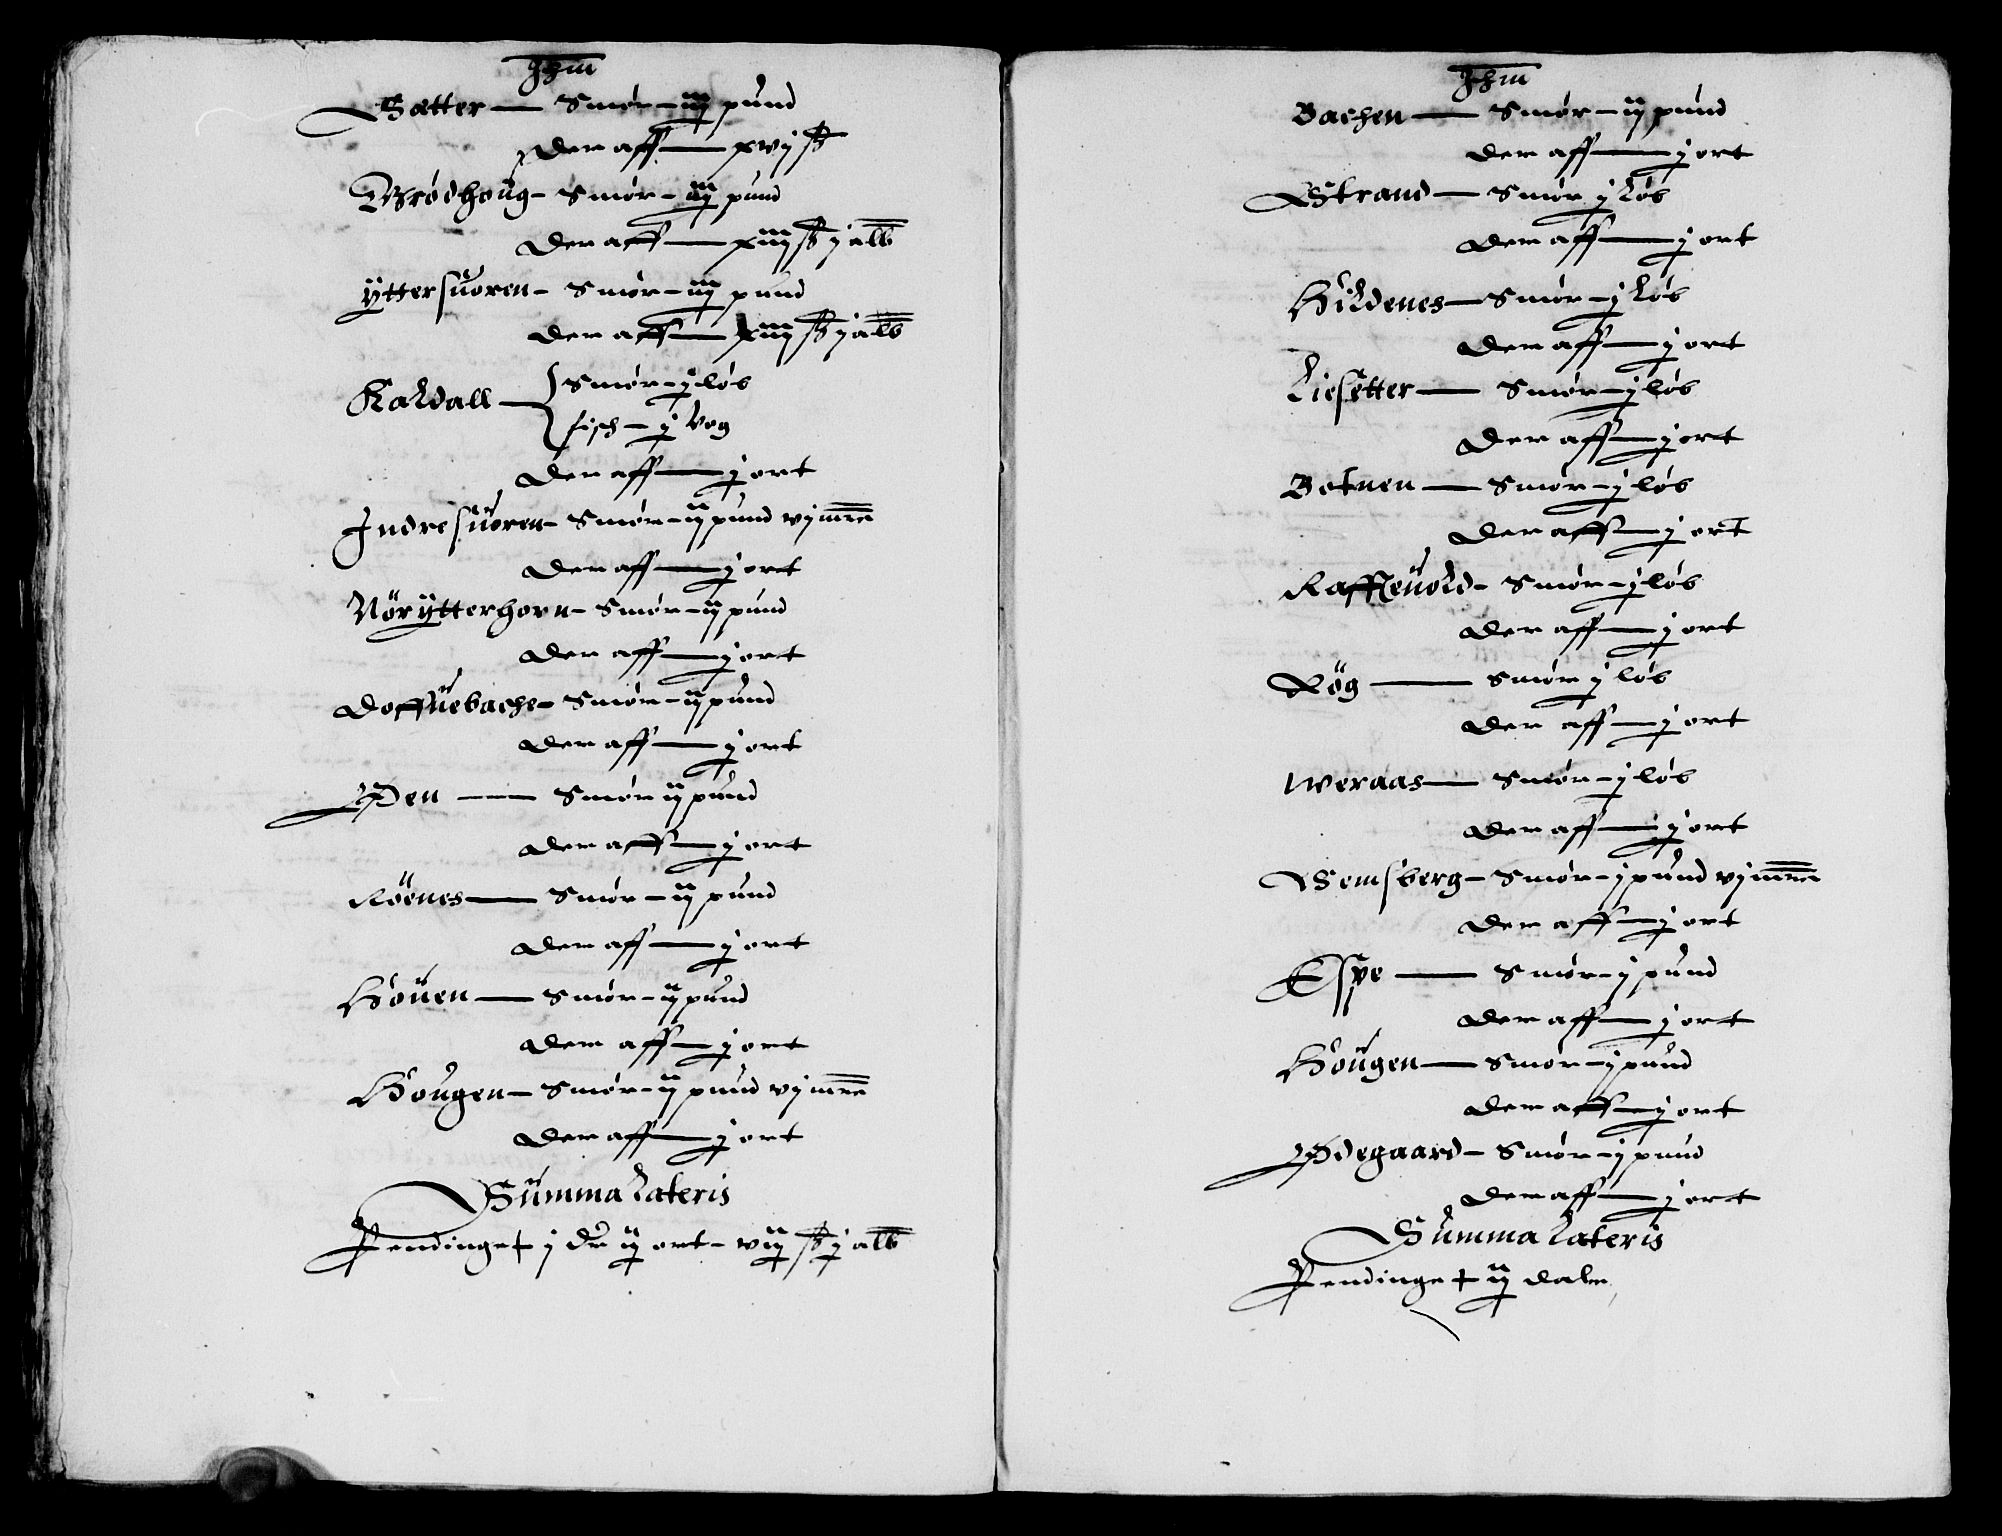 Jhm
Sætter — Smør – iiij pund
Der aff — xvj ß
Brødhoug – Smør – iiij pund
Der aff — xiiij ß j alb
Yttersuoren – Smør – iiij pund
Der aff — xiiij ß j alb
Kaldall — Smør – j løb
fisch – j Vog
Der aff — j ort
Indresuoren – Smør – ij pund vj mrc
Der aff — j ort
Nörÿtterhorn – Smør – ij pund
Der aff — j ort
Doffuebache – Smør – ij pund
Der aff — j ort
Øen — Smør ij pund
Der aff — j ort
Röenes — Smør – ij pund
Der aff — j ort
Houen — Smør – ij pund
Der aff — j ort
Hougen – Smør – ij pund vj mrc
Der aff — j ort
Summa Lateris
Pendinge + j dr ij ort – viij ß j alb
Jhm
Bachen — Smør – ij pund
Der aff — j ort
Strand — Smør j Løb
Der aff — j ort
Hildenes — Smør – j Løb
Der aff — j ort
Liesetter — Smør – j løb
Der aff — j ort
Botnen — Smør – j løb
Der aff — j ort
Raffleuold – Smør – j løb
Der aff — j ort
Røg — Smør j løb
Der aff — j ort
Weraas — Smør – j løb
Der aff — j ort
Semsberg – Smør – j pund vj mrc
Der aff — j ort
Espe — Smør – j pund
Der aff — j ort
Hougen — Smør – j pund
Der aff — j ort
Ødegaard – Smør – j pund
Der aff — j ort
Summa Lateris
Pendinge + iij daler